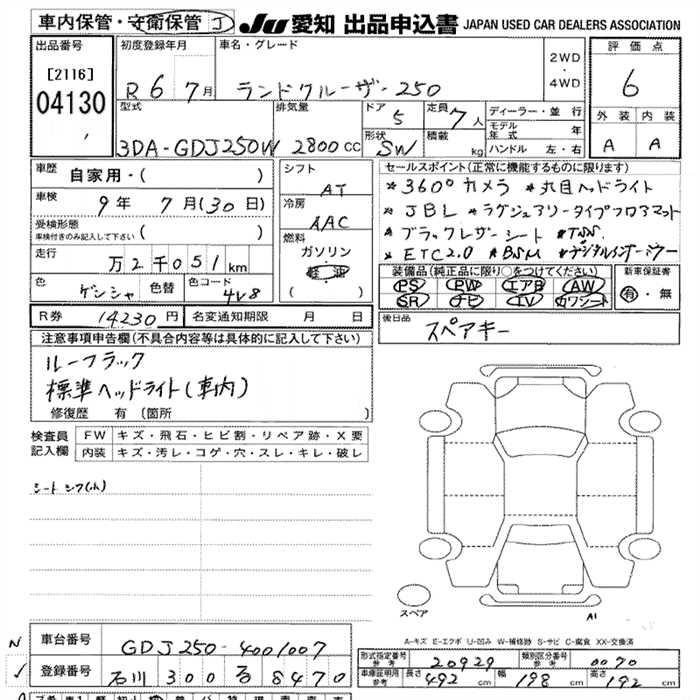 車内保管・守衛保管 J
JU 愛知 出品申込書 JAPAN USED CAR DEALERS ASSOCIATION
出品番号
[2116]
04130
初度登録年月
R 6 年 7月
車名・グレード
ランドクルーザー250
2WD
・
4WD
評価点
6
外装 内装
A A
型式
3DA-GDJ250W
排気量
2800 CC
ドア
5
定員
7人
形状
SW
積載
kg
ディーラー・並行
モデル年式 年
ハンドル 左・右
車歴
自家用・( )
車検
9年 7月(30日)
受検形態
車検付きのみ記入して下さい ( )
走行
万2千051km
色
ゲンシャ
色替
色コード
4V8
シフト
AT
冷房
AAC
燃料
ガソリン
軽油
( )
セールスポイント(正常に機能するものに限ります)
*360°カメラ *丸目ヘッドライト
*JBL *ラグジュアリータイプフロアマット
*ブラックレザーシート *TSS
*ETC2.0 *BSM *デジタルインナーミラー
装備品(純正品に限り○をつけてください)
PS PW エアB AW
SR ナビ TV カワシート
新車保証書
有・無
R券 14230円
名変通知期限 月 日
後日品
スペアキー
注意事項申告欄(不具合内容等は具体的に記入して下さい)
ルーフラック
標準ヘッドライト(車内)
修復歴 有 (箇所 )
検査員記入欄
FW キズ・飛石・ヒビ割・リペア跡・X要
内装 キズ・汚レ・コゲ・穴・スレ・キレ・破レ
シートシワ(小)
スペア
A1
A-キズ E-エクボ U-凹み W-補修跡 S-サビ C-腐食 XX-交換済
車台番号
GDJ250-4001007
登録番号
石川 300 る 8470
形式指定番号
参考
20929
類別区分番号
参考
0070
車庫証明用
参考
長さ 492 cm
幅 198 cm
高さ 192 cm